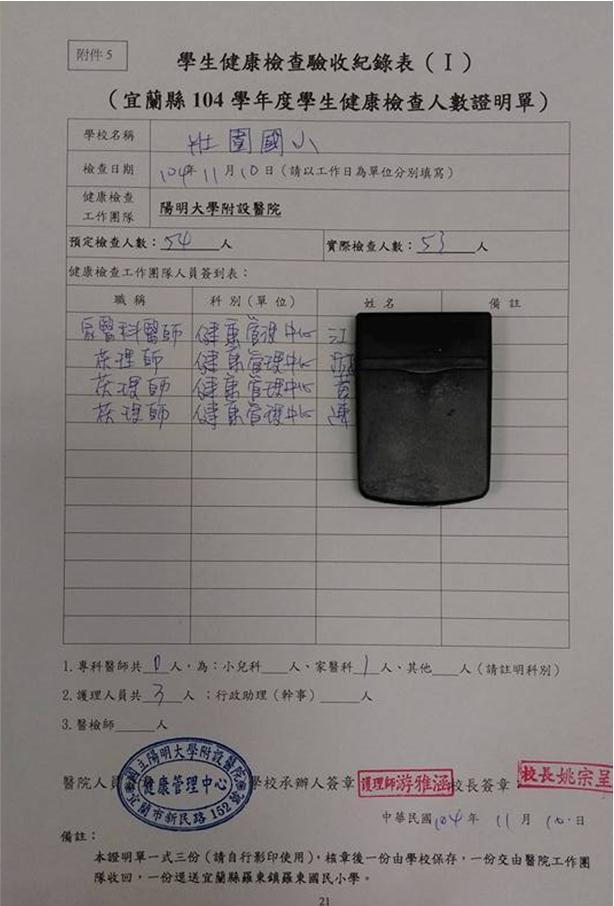 附件 5
學生健康檢查驗收紀錄表（I）
（宜蘭縣 104 學年度學生健康檢查人數證明單）
學校名稱 壯圍國小
檢查日期 104年 11 月 10 日（請以工作日為單位分別填寫）
健康檢查
工作團隊 陽明大學附設醫院
預定檢查人數：54人 實際檢查人數：53人
健康檢查工作團隊人員簽到表：
職稱 科別（單位） 姓名 備註
家醫科醫師 健康管理中心 江
護理師 健康管理中心
護理師 健康管理中心
護理師 健康管理中心 連
1.專科醫師共 人，為：小兒科___人、家醫科1人、其他___人（請註明科別）
2.護理人員共3人；行政助理（幹事）_____人
3.醫檢師____人
醫院人員 學校承辦人簽章 護理師游雅涵 校長簽章： 校長姚宗呈
國立陽明大學附設醫院
健康管理中心
宜蘭市新民路 152 號
中華民國 104 年 11 月 10 日
備註：
本證明單一式三份（請自行影印使用），核章後一份由學校保存，一份交由醫院工作團
隊收回，一份逕送宜蘭縣羅東鎮羅東國民小學。
21